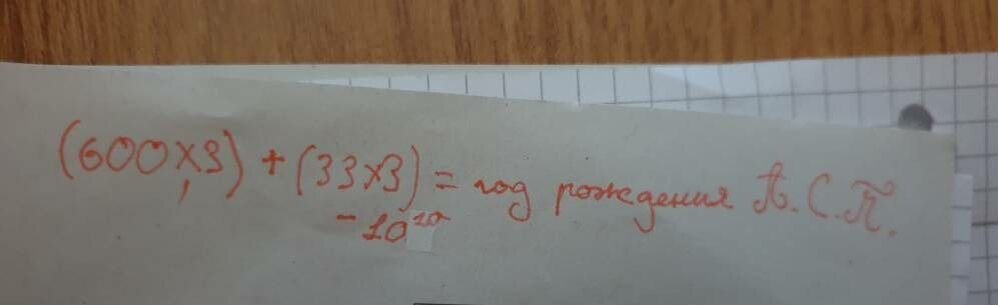 (600x3) + (33x3) = год рождения А. С. П.
- 10²⁰